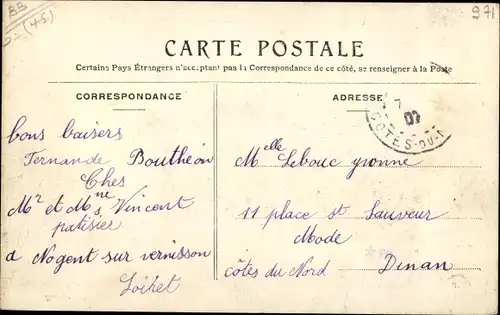 BB
(45)
971
CARTE POSTALE
Certains Pays Étrangers n'acceptant pas la Correspondance de ce côté, se renseigner à la Poste
CORRESPONDANCE
bons baisers
Fernande Bouthéon
Ches
Mr et Mme Vincent
patisier
a Nogent sur vernisson
Loiret
ADRESSE
7
07
COTES-DU-N
Melle Lebouc yvonne
11 place St Sauveur
Mode
côtes du Nord Dinan